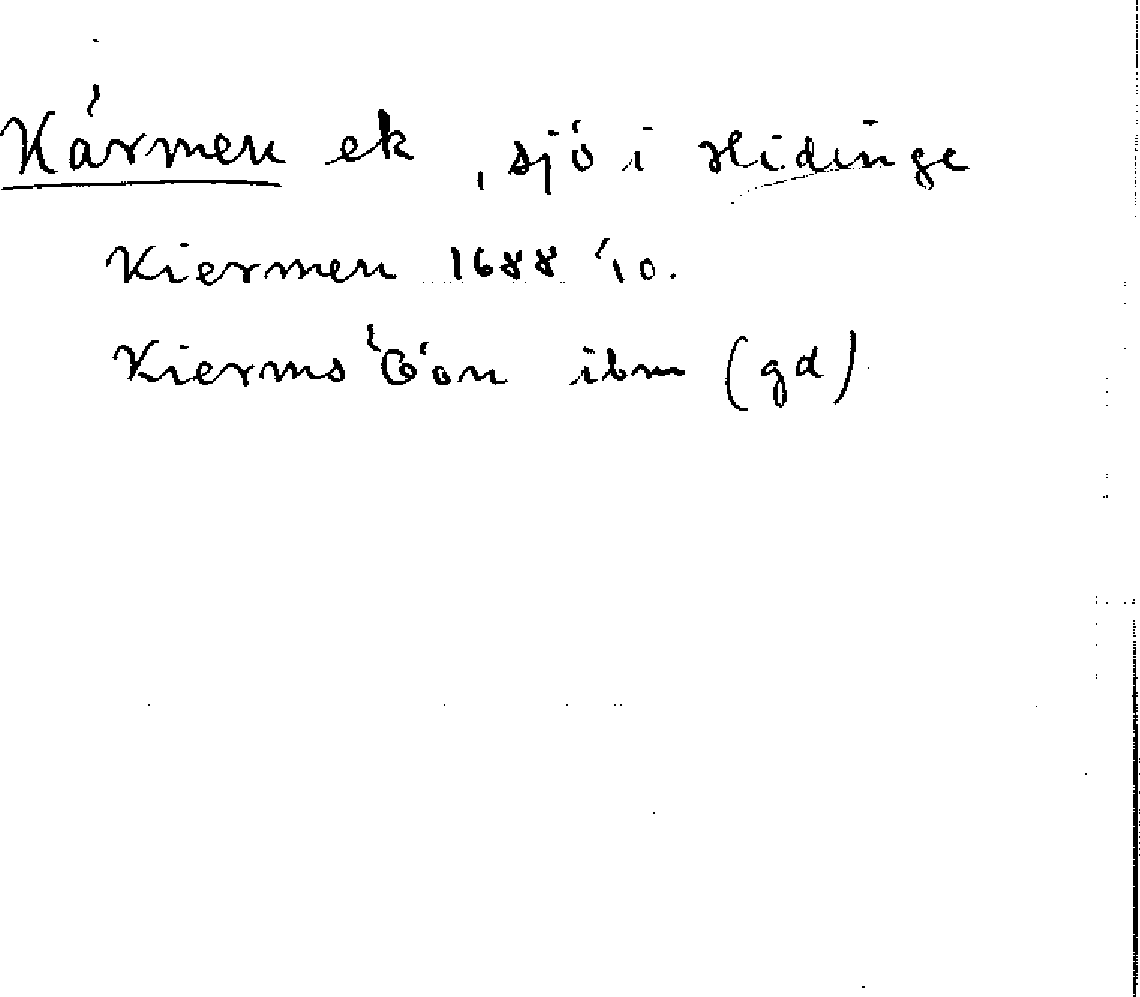 Kärmen ek, sjö i Hidinge
Kiermen 1688 '10.
Kierms Öön ibm (gd)